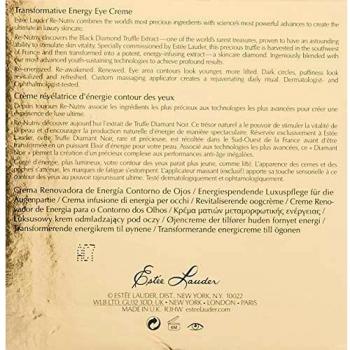 Transformative Energy Eye Creme
Estée Lauder Re-Nutriv combines the world's most precious ingredients with science's most powerful advances to create the
ultimate in luxury skincare.
Re-Nutriv discovers the Black Diamond Truffle Extract—one of the world's rarest treasures, proven to have an astounding
ability to stimulate skin's vitality. Specially commissioned by Estée Lauder, this precious truffle is harvested in the southwest
of France and then transformed into a potent, energy-infusing extract—a skincare diamond. Ingeniously blended with
our most advanced youth-sustaining technologies to achieve profound results.
Re-energized. Re-awakened. Renewed. Eye area contours look younger, more lifted. Dark circles, puffiness look
revitalized and refreshed. Custom massaging applicator creates a rejuvenating daily ritual. Dermatologist- and
Ophthalmologist-tested.
Crème révélatrice d'énergie contour des yeux
Depuis toujours Re-Nutriv associe les ingrédients les plus précieux aux technologies les plus avancées pour créer une
expérience de luxe ultime.
Re-Nutriv découvre aujourd'hui l'extrait de Truffe Diamant Noir. Ce trésor naturel a le pouvoir de stimuler la vitalité de
la peau et d'encourager la production naturelle d'énergie de manière spectaculaire. Réservée exclusivement à Estée
Lauder, cette Truffe Diamant Noir, rare et précieuse, est récoltée dans le Sud-Ouest de la France avant d'être
transformée en un puissant Elixir d'énergie pour votre peau. Associé aux technologies les plus avancées, ce « Diamant
Noir » permet la création d'un précieux complexe aux performances anti-âge inégalées.
Chargé d'énergie, plus lumineux, votre contour des yeux parait plus jeune, comme lifté. L'apparence des cernes et des
poches s'atténue, les marques de fatigue s'estompent. L'applicateur massant exclusif apporte sa touche sensorielle à ce
concentré de luxe, dans un rituel quotidien d'exception. Testé dermatologiquement et ophtalmologiquement.
Crema Renovadora de Energía Contorno de Ojos / Energiespendende Luxuspflege für die
Augenpartie / Crema infusione di energia per occhi / Revitaliserende oogcrème / Creme Reno-
vador de Energia para o Contorno dos Olhos / Κρέμα ματιών μεταμορφωτικής ενέργειας /
Luksusowy krem odmładzający pod oczy / Ojencreme der tilfører hunden fornyet energi /
Transformerende energikrem til øynene / Transformerande energicreme till ögonen
AC7
Estée Lauder
© ESTÉE LAUDER, DIST. NEW YORK, N.Y. 10022
WLB LTD, GU32 3DD, UK • NEW YORK • LONDON • PARIS
MADE IN U.K. R3HW esteelauder.com
6M